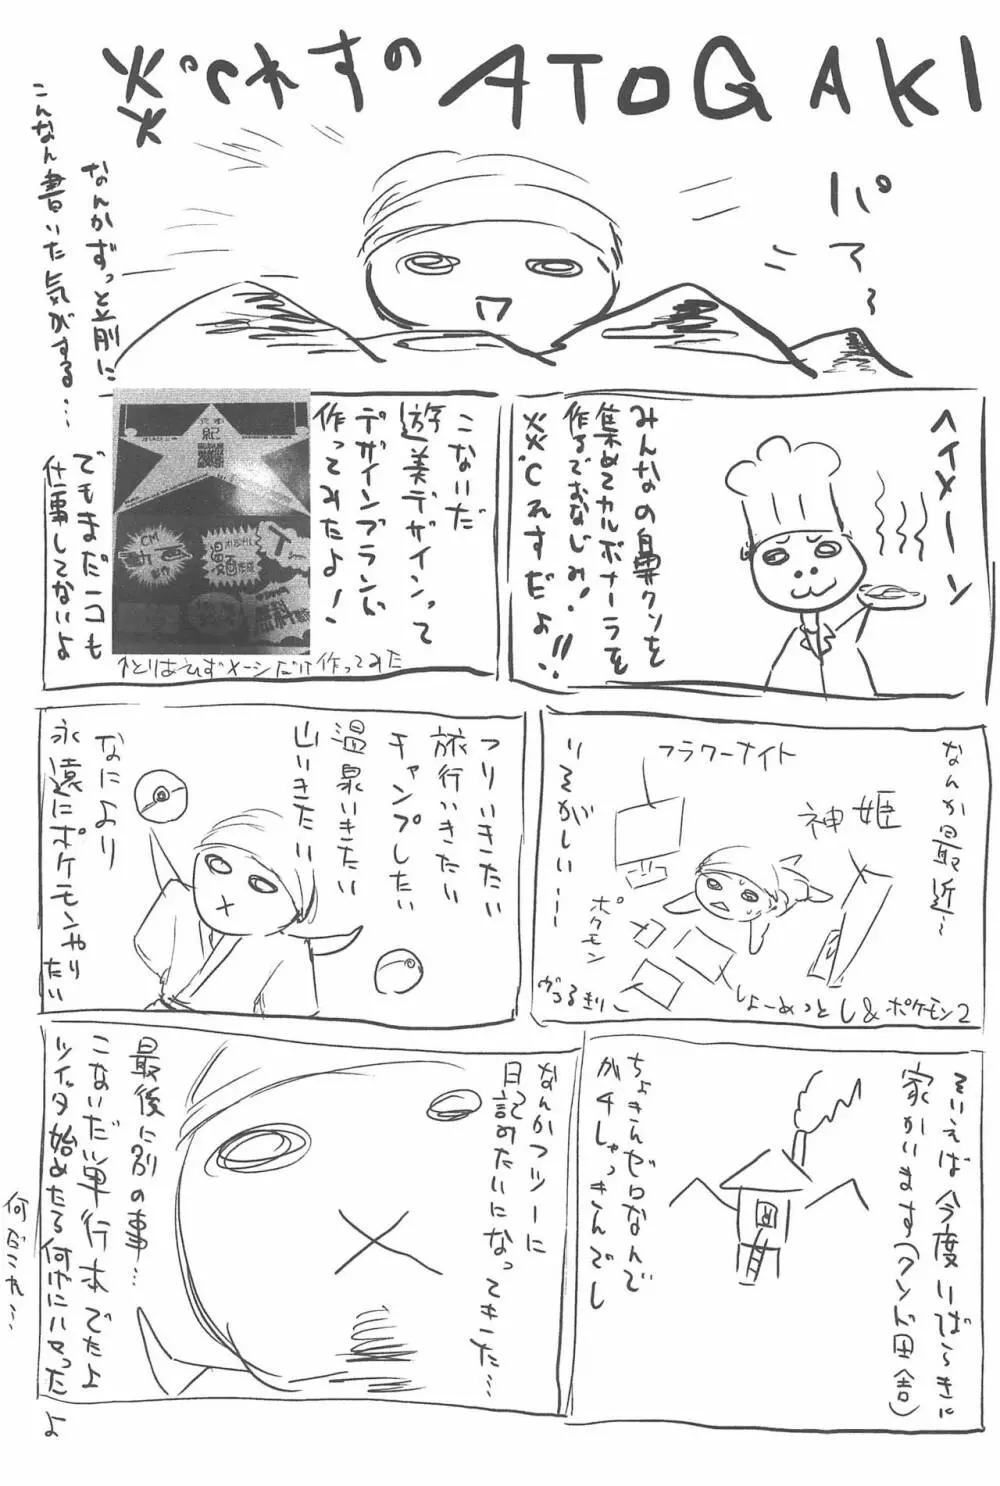 炎℃れすのATOGAKI
パァ〜
なんかずっと前に
こんなん書いた気がする…
ヘイメーン
みんなの鼻クソを
集めてカルボナーラを
作るでおなじみ!
炎℃れすだよ!!
こないだ
遊美デザインって
デザインブランド
作ってみたよ!
↑とりあえずメーシだけ作ってみた
でもまだ一コも
仕事してないよ
なんか最近〜
いそがしい…
フラワーナイト
神姫
ポケモン
しょーめっとし&ポケモン2
つりいきたい
旅行いきたい
キャンプしたい
温泉いきたい
山いきたい
なにより
永遠にポケモンやりたい
そいえば今度いばらきに
家かいます(クソド田舎)
ちょきんゼロなんで
ガチしゃっきんでし
なんかフツーに
日記みたいになってきた…
最後に別の事…
こないだ単行本でたよ
ツイッタ始めたる何げにハマったよ
何だこれ…